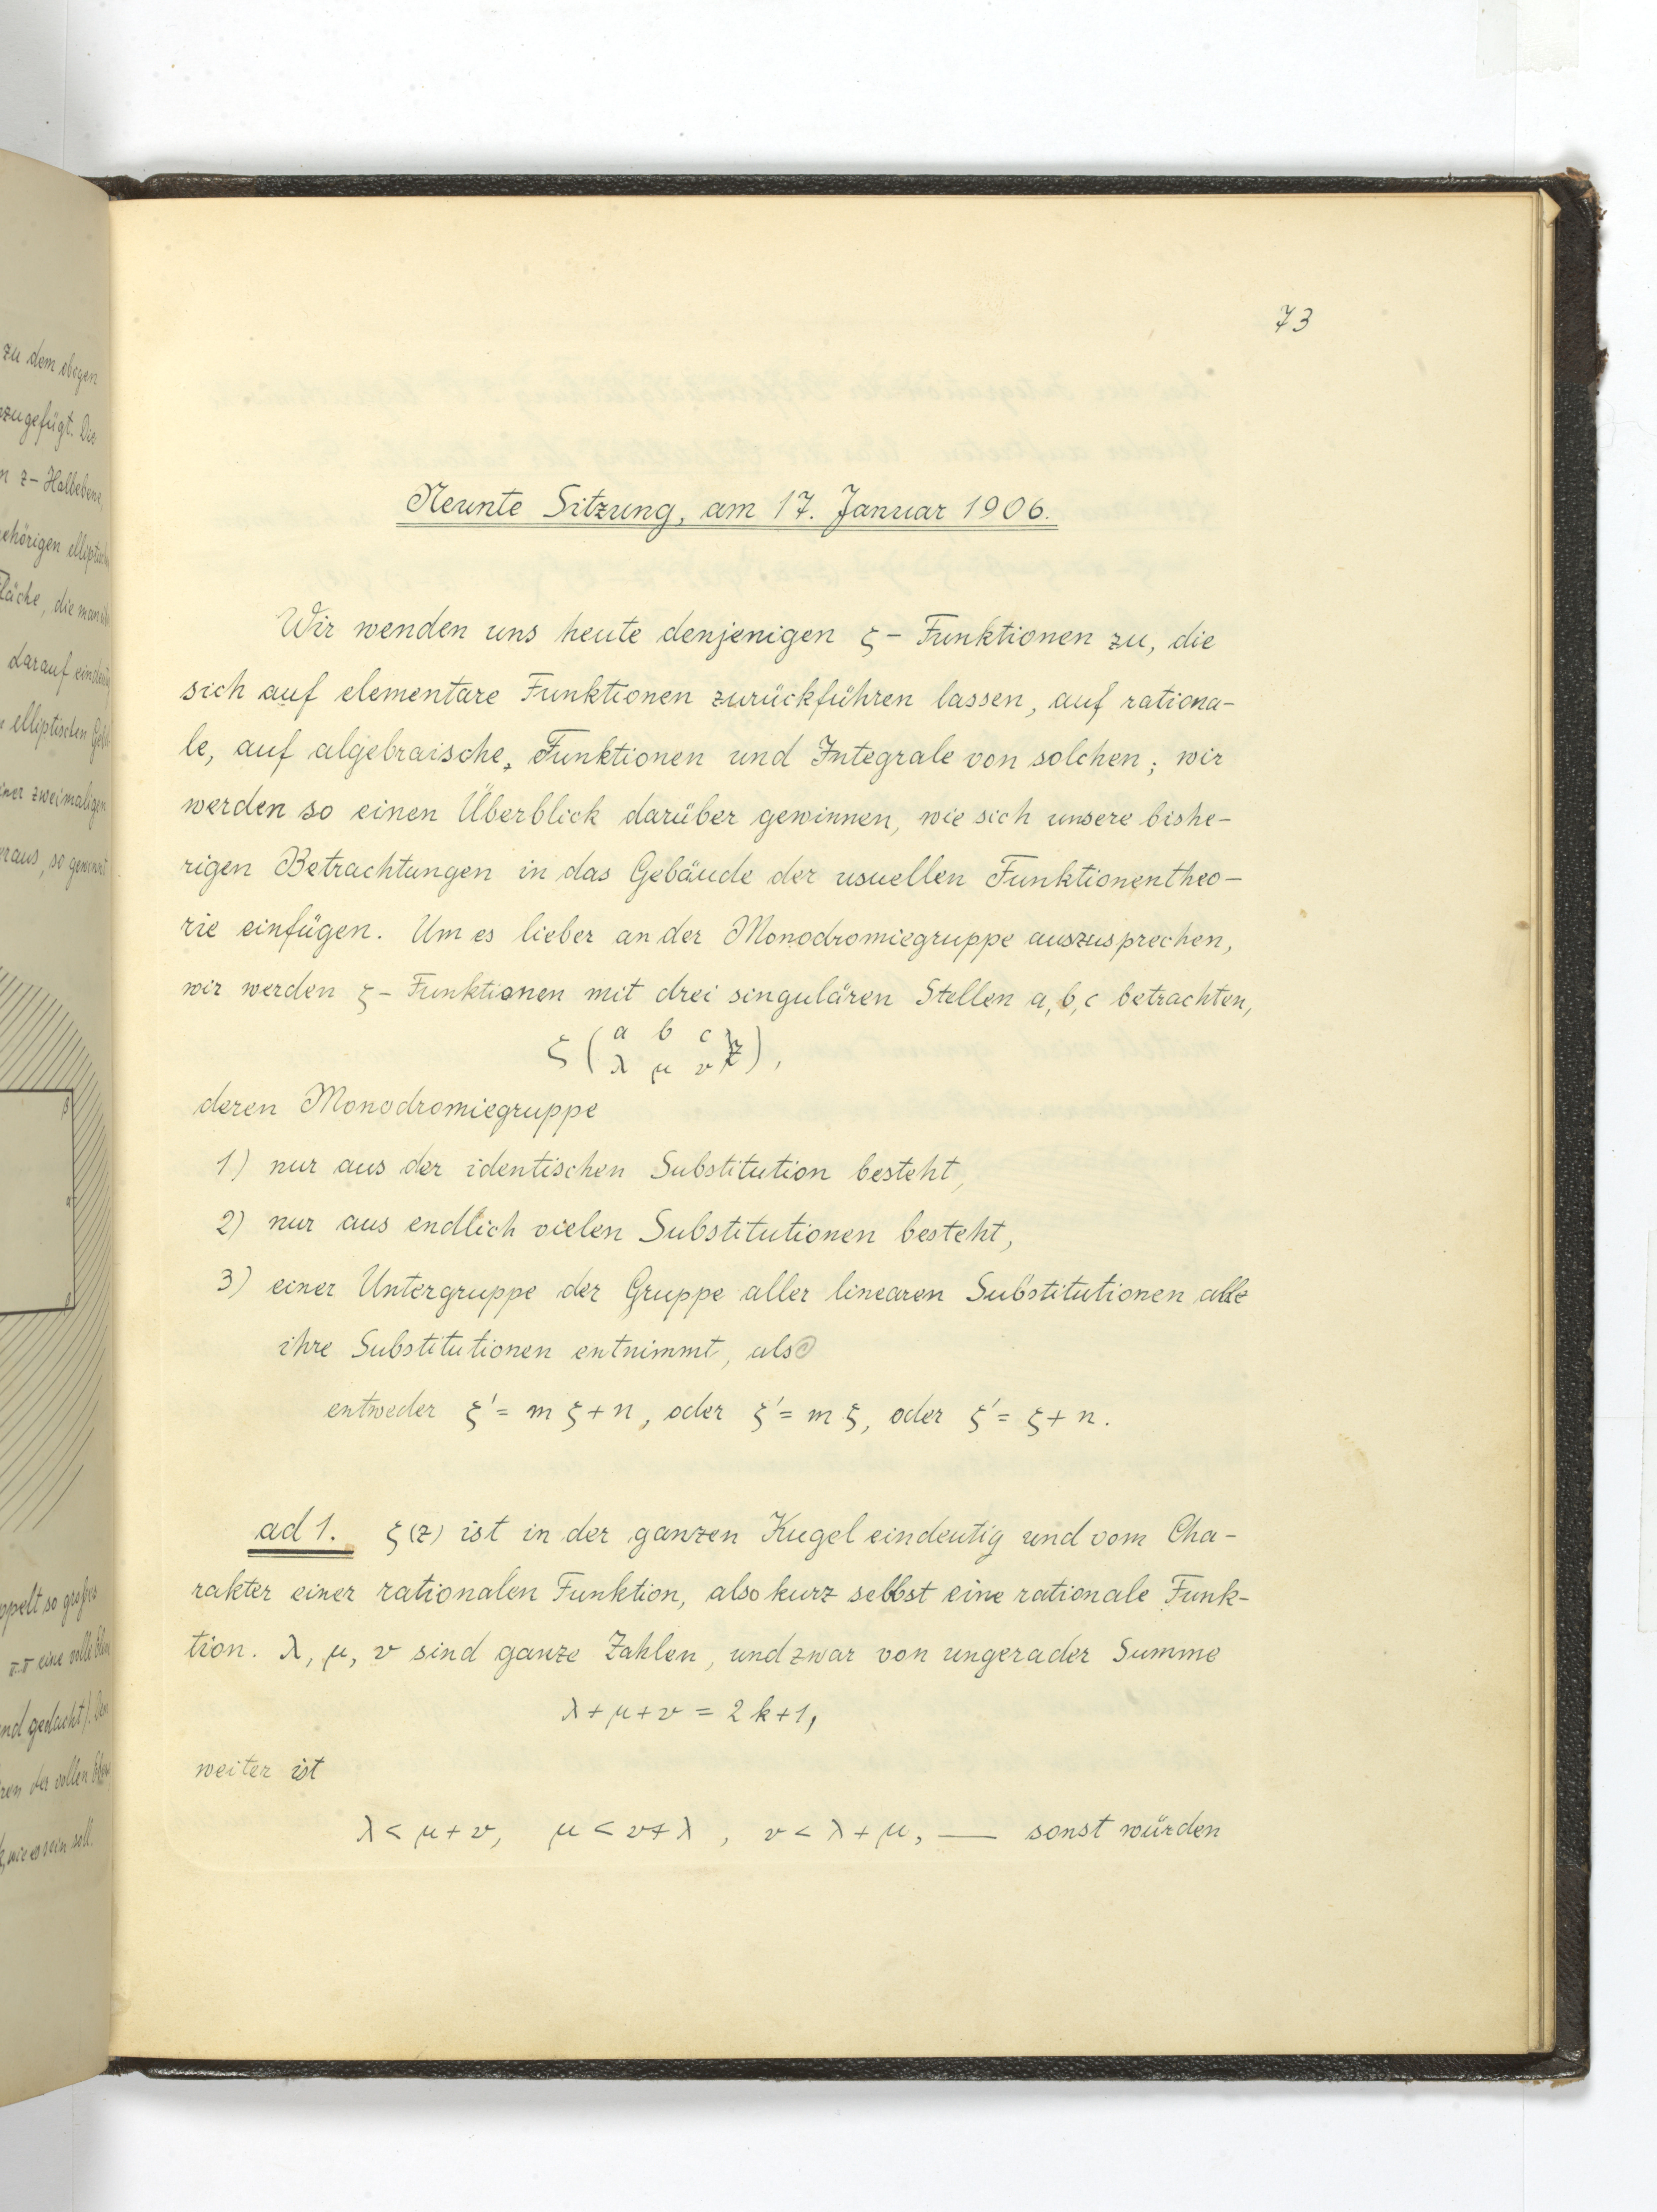 zu dem obigen
zugefügt. Die
n z – Halbebene,
ehörigen elliptischen
Fläche, die man
darauf eindeutig
elliptischen
einer zweimaligen
eraus, so gewinnt
β
ppelt so großes
eine volle Eben
nd gedacht). Den
ren der vollen Eben
wie es sein soll.
73
Neunte Sitzung, am 17. Januar 1906.
Wir wenden uns heute denjenigen ζ – Funktionen zu, die
sich auf elementare Funktionen zurückführen lassen, auf rationa-
le, auf algebraische, Funktionen und Integrale von solchen; wir
werden so einen Überblick darüber gewinnen, wie sich unsere bishe-
rigen Betrachtungen in das Gebäude der usuellen Funktionentheo-
rie einfügen. Um es lieber an der Monodromiegruppe auszusprechen,
wir werden ζ – Funktionen mit drei singulären Stellen a, b, c betrachten,
ζ ( a b c z ),
λ μ ν
deren Monodromiegruppe
1) nur aus der identischen Substitution besteht,
2) nur aus endlich vielen Substitutionen besteht,
3) einer Untergruppe der Gruppe aller linearen Substitutionen alle
ihre Substitutionen entnimmt, also
entweder ζ' = m ζ + n, oder ζ' = m ζ, oder ζ' = ζ + n.
ad 1. ζ(z) ist in der ganzen Kugel eindeutig und vom Cha-
rakter einer rationalen Funktion, also kurz selbst eine rationale Funk-
tion. λ, μ, ν sind ganze Zahlen, und zwar von ungerader Summe
λ + μ + ν = 2k+1,
weiter ist
λ < μ + ν, μ < ν + λ, ν < λ + μ, — sonst würden